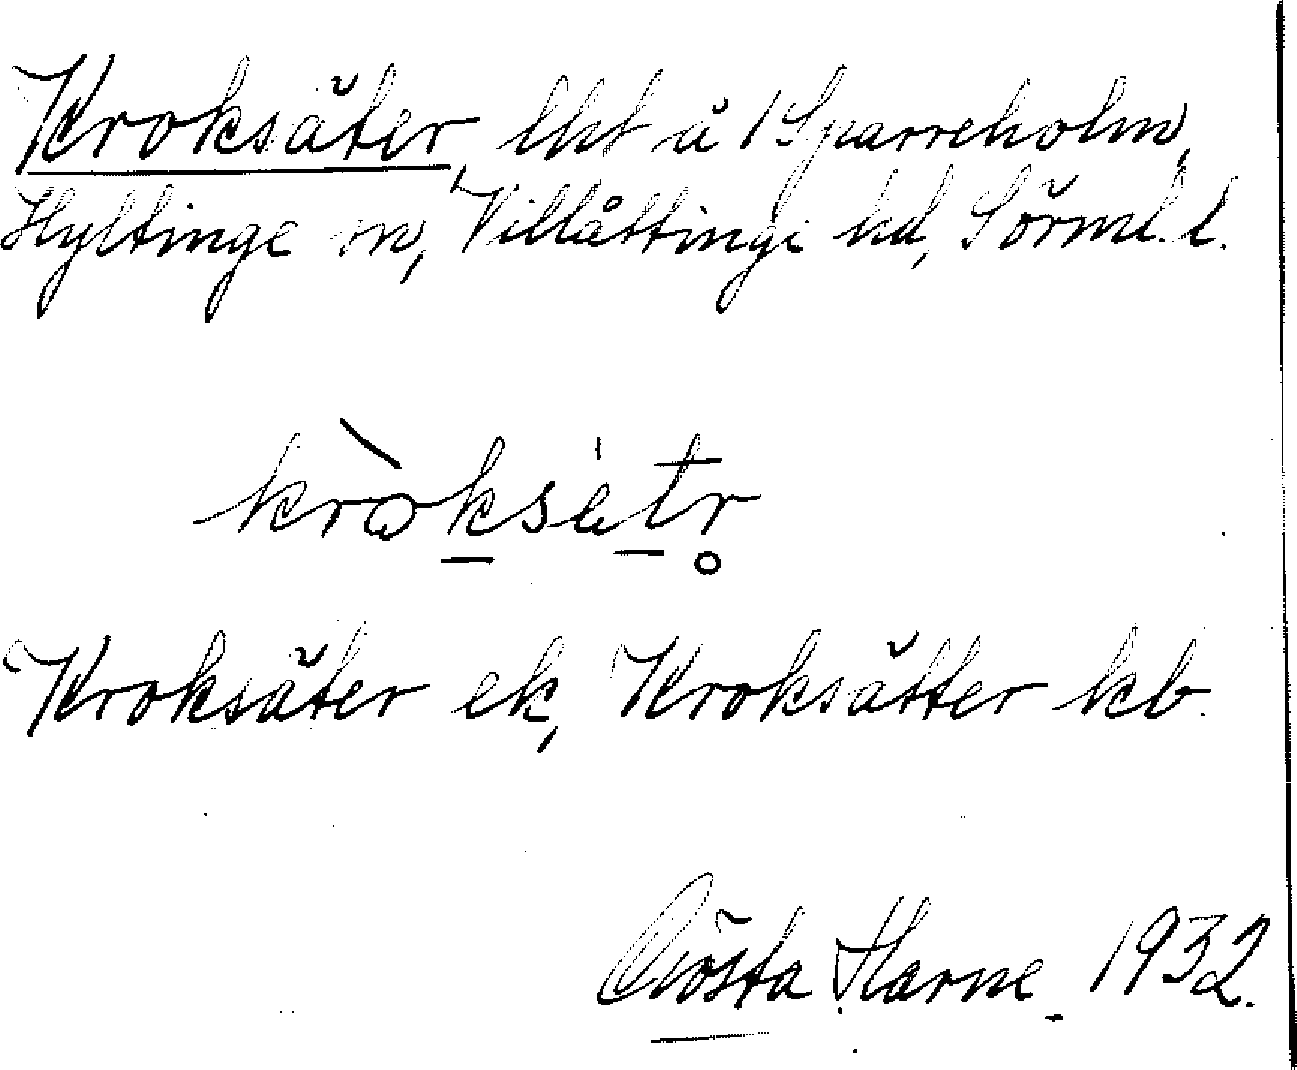 Kroksäter, lht å 1 Sparreholm,
Hyltinge sn, Villåttinge hd, Sörml. l.
kròksä̀tr̥
Kroksäter ek, Kroksätter kb.
Gösta Harne 1932.